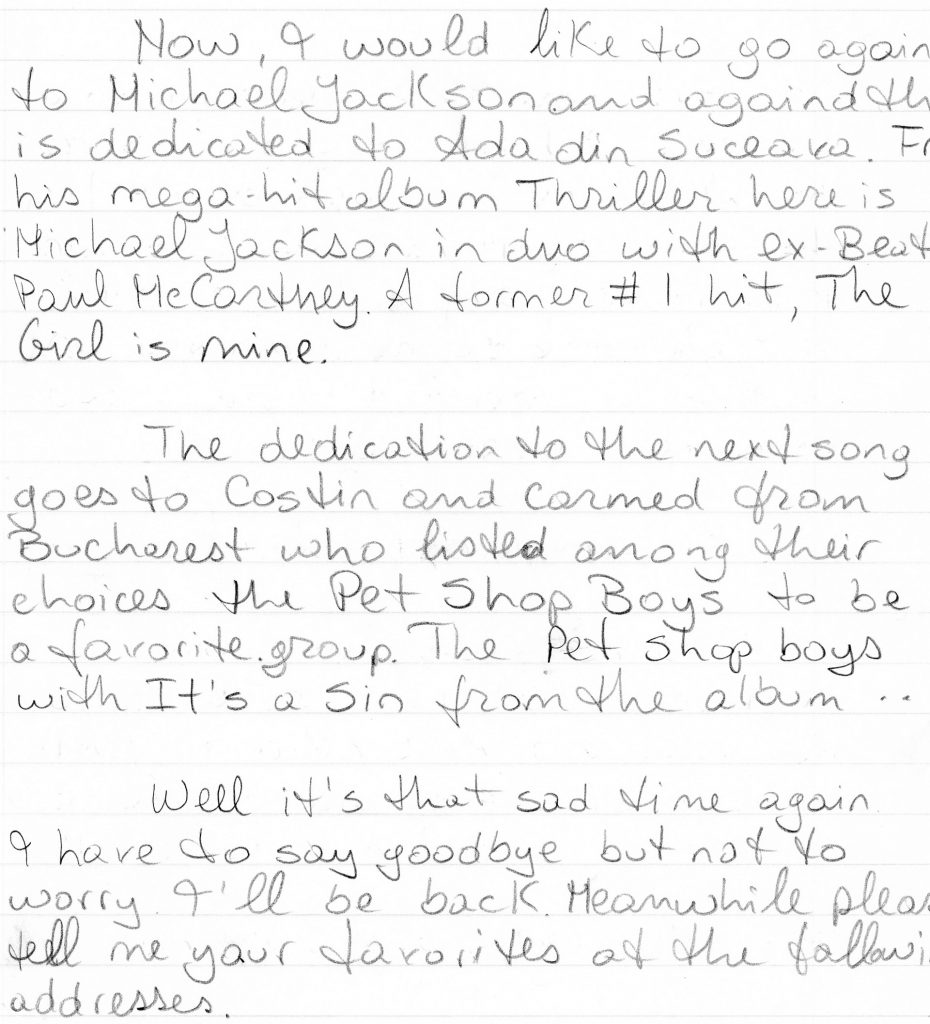 Now, I would like to go again
to Michael Jackson and againd th
is dedicated to Ada din Suceava. Fr
his mega-hit album Thriller here is
Michael Jackson in duo with ex-Beat
Paul McCarthey. A former #1 hit, The
Girl is mine.
The dedication to the next song
goes to Costin and Carmed from
Bucharest who listed among their
choices the Pet Shop Boys to be
a favorite group. The Pet Shop boys
with It's a Sin from the album ..
Well it's that sad time again.
I have to say goodbye but not to
worry. I'll be back. Meanwhile pleas
tell me your favorites at the followi
addresses.